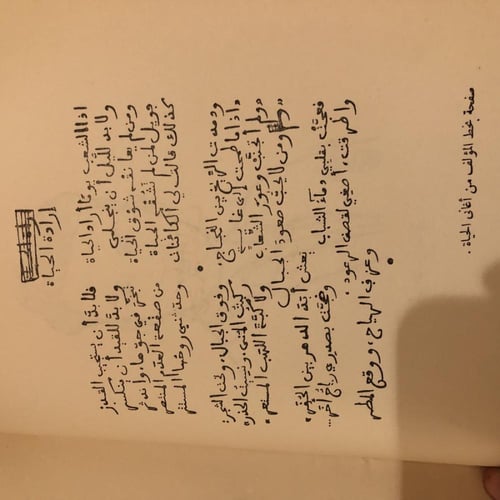 إرادة الحياة
اذا الشعب يوما أراد الحياة فلا بدّ أن يستجيب القدر
ولا بد لليل أن ينجلي ولا بدّ للقيد أن ينكسر
ومن لم يعانقه شوق الحياة تبخّر في جوّها، واندثر
فويل لمن لم تشقه الحياة من صفعة العدم المنتصر
كذلك قالت لي الكائنات وحدّثني روحها المستتر
ودمدمت الريح بين الفجاج، وفوق الجبال، وتحت الشجر:
«إذا ما طمحت إلى غاية ركبت المنى، ونسيت الحذر
«ولم أتجنّب وعور الشّعاب ولا كبّة اللهب المستعر»
«ومن لا يحبّ صعود الجبال يعش أبد الدهر بين الحفر»
فعجّت بقلبي دماء الشباب وضجّت بصدري رياح أخر...
وأطرقت، أصغي لقصف الرعود، وعزف الرياح، ووقع المطر
صفحة بخط المؤلف من أغاني الحياة .